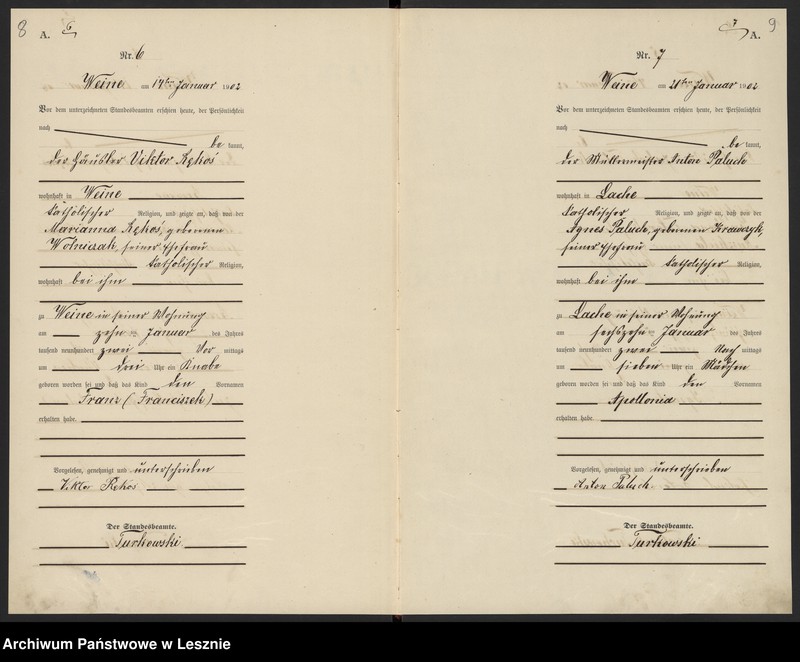 8
A. 6
Nr. 6
Weine am 14ten Januar 1902
Vor dem unterzeichneten Standesbeamten erschien heute, der Persönlichkeit
nach
be kannt,
der Häusler Viktor Rękoś
wohnhaft in Weine
katholischer Religion, und zeigte an, daß von der
Marianna Rękos, geborenen
Wolniczak, seiner Ehefrau
katholischer Religion,
wohnhaft bei ihm
zu Weine in seiner Wohnung
am zehn ten Januar des Jahres
tausend neunhundert zwei Vor mittags
um drei Uhr ein Knabe
geboren worden sei und daß das Kind den Vornamen
Franz (Franciszek)
erhalten habe.
Vorgelesen, genehmigt und unterschrieben
Viktor Rękos
Der Standesbeamte.
Turkowski
7 A. 9
Nr. 7
Weine am 21ten Januar 1902
Vor dem unterzeichneten Standesbeamten erschien heute, der Persönlichkeit
nach
be kannt,
der Müllermeister Anton Paluch
wohnhaft in Lache
katholischer Religion, und zeigte an, daß von der
Agnes Paluch, geborenen Krawczyk,
seiner Ehefrau
katholischer Religion,
wohnhaft bei ihm
zu Lache in seiner Wohnung
am sechszehn ten Januar des Jahres
tausend neunhundert zwei Nach mittags
um sieben Uhr ein Mädchen
geboren worden sei und daß das Kind den Vornamen
Apollonia
erhalten habe.
Vorgelesen, genehmigt und unterschrieben
Anton Paluch.
Der Standesbeamte.
Turkowski
Archiwum Państwowe w Lesznie